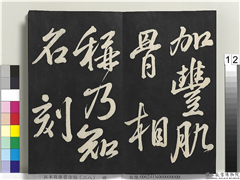 加豐肌
骨相
稱乃知
名刻
12